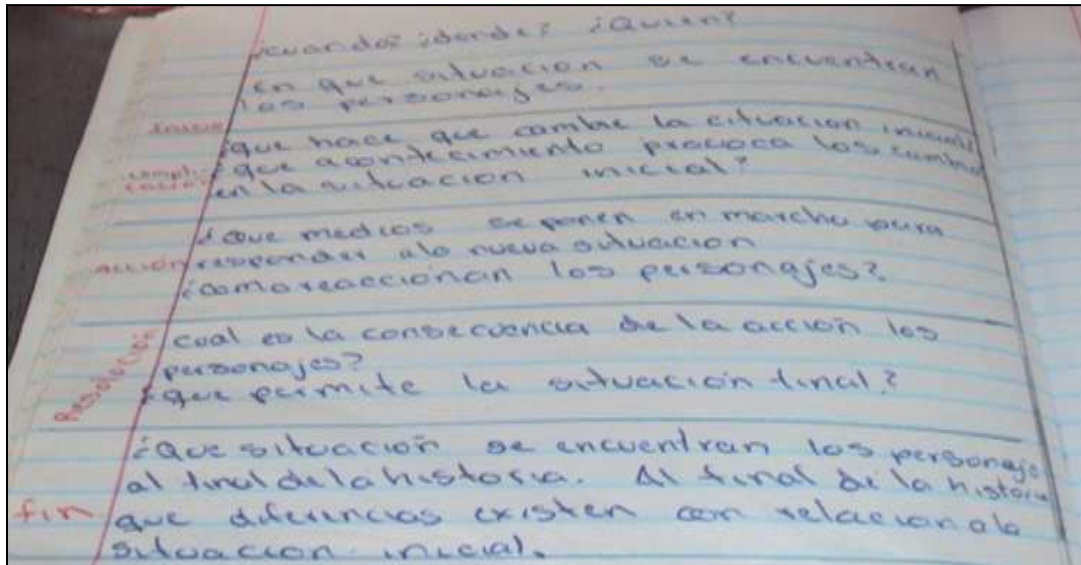 ¿cuando? ¿donde? ¿Quien?
en que situacion se encuentran
los personajes.
inicio
¿que hace que cambie la cituacion inicial?
compli- ¿que acontecimiento provoca los cambio
cación en la situacion inicial?
¿que medios se ponen en marcha para
acción responder a la nueva situacion
¿como reaccionan los personajes?
cual es la consecuencia de la acción los
Resolución personajes?
¿que permite la situación final?
¿Que situación se encuentran los personaje
al final de la historia. Al final de la historia
fin que diferencias existen con relacion a la
situacion inicial.